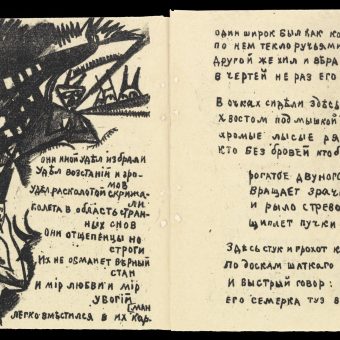 они иной удѣл избрали
Удѣл возстаний и гро-
мов
Удѣл расколотой скрижа-
ли
полета в область стран-
ных снов
Они отщепенцы но
строги
Их не обманет вѣрный
стан
И мiр любви и мiр
убогiй
(ман
легко вмѣстился в их кар-
один широк был как ко
по нем текло ручьями
другой же хил и вбра
в чертей не раз его
В очках сидѣли здѣсь
Хвостом под мышкой
хромые лысые ря
кто без бровей кто б
рогатое двуного
вращает зрач
и рыло с трево
щиплет пучки
Здѣсь стук и грохот к
по доскам шаткаго
и быстрый говор:
его семерка туз в